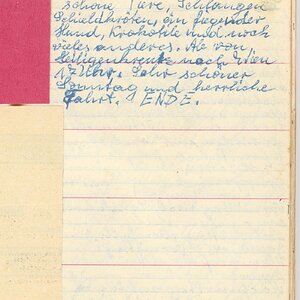 schöne Tiere, Schlangen
Schieldkröten, ein fliegender
Hund, Krokotile und noch
vieles anderes. Ab von
Heiligenkreuz nach Wien
17 Uhr. Sehr schöner
Sonntag und herrliche
Fahrt. ENDE.